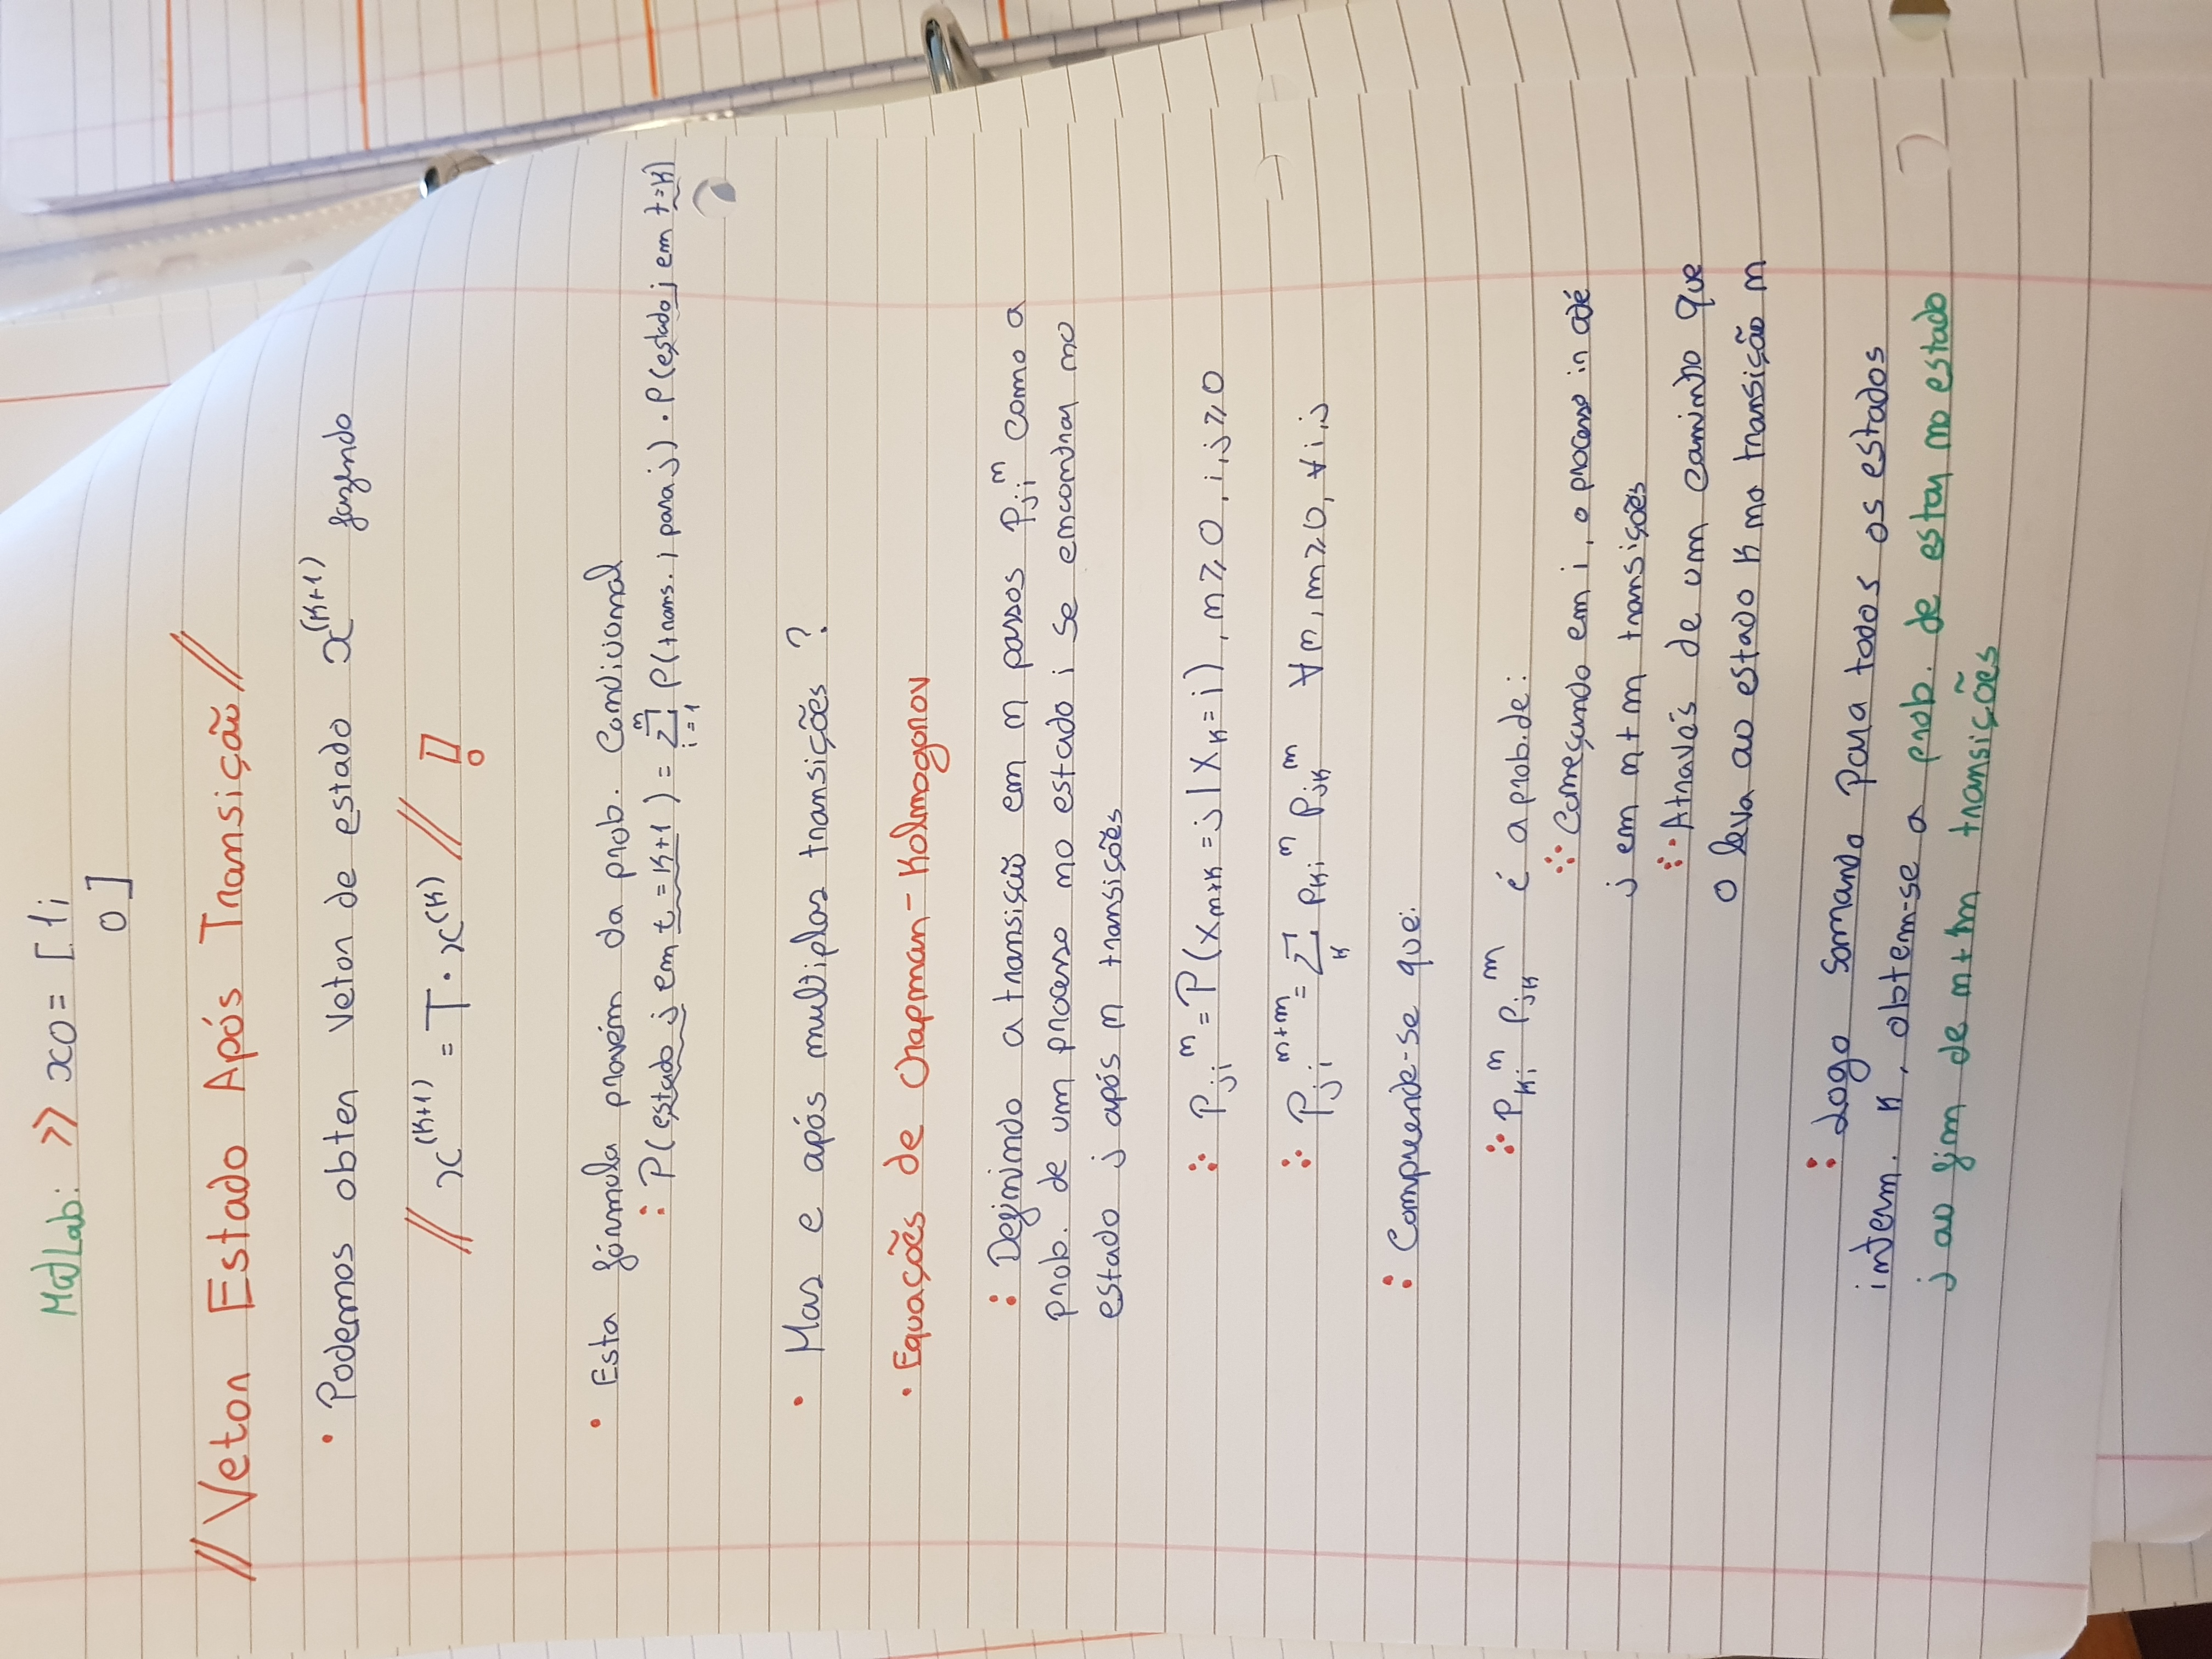 MatLab: >> x0 = [ 1;
0 ]
// Vetor Estado Após Transição //
• Podemos obter Vetor de estado x^(K+1) fazendo
// x^(K+1) = T · x^(K) // !
• Esta fórmula provém da prob. Condicional
: P(estado j em t = K+1) = Σ_{i=1}^{n} P(trans. i para j) · P(estado j em t=K)
• Mas e após multiplas transições ?
• Equações de Chapman-Kolmogorov
: Definindo a transisção em n passos P_{ji}^n como a
prob. de um processo no estado i se encontrar no
estado j após n transições
∴ P_{ji}^n = P(X_{n+K} = j | X_K = i), n ≥ 0, i,j ≥ 0
∴ P_{ji}^{n+m} = Σ_K P_{Ki}^n P_{jK}^m ∀ n, m ≥ 0, ∀ i,j
: Compreende-se que:
∴ P_{Ki}^n P_{jK}^m é a prob. de:
Começando em i, o processo ir até
j em n+m transições
Através de um caminho que
o leva ao estado K na transição n
: Logo somando para todos os estados
interm. K, obtem-se a prob. de estar no estado
j ao fim de n+m transições